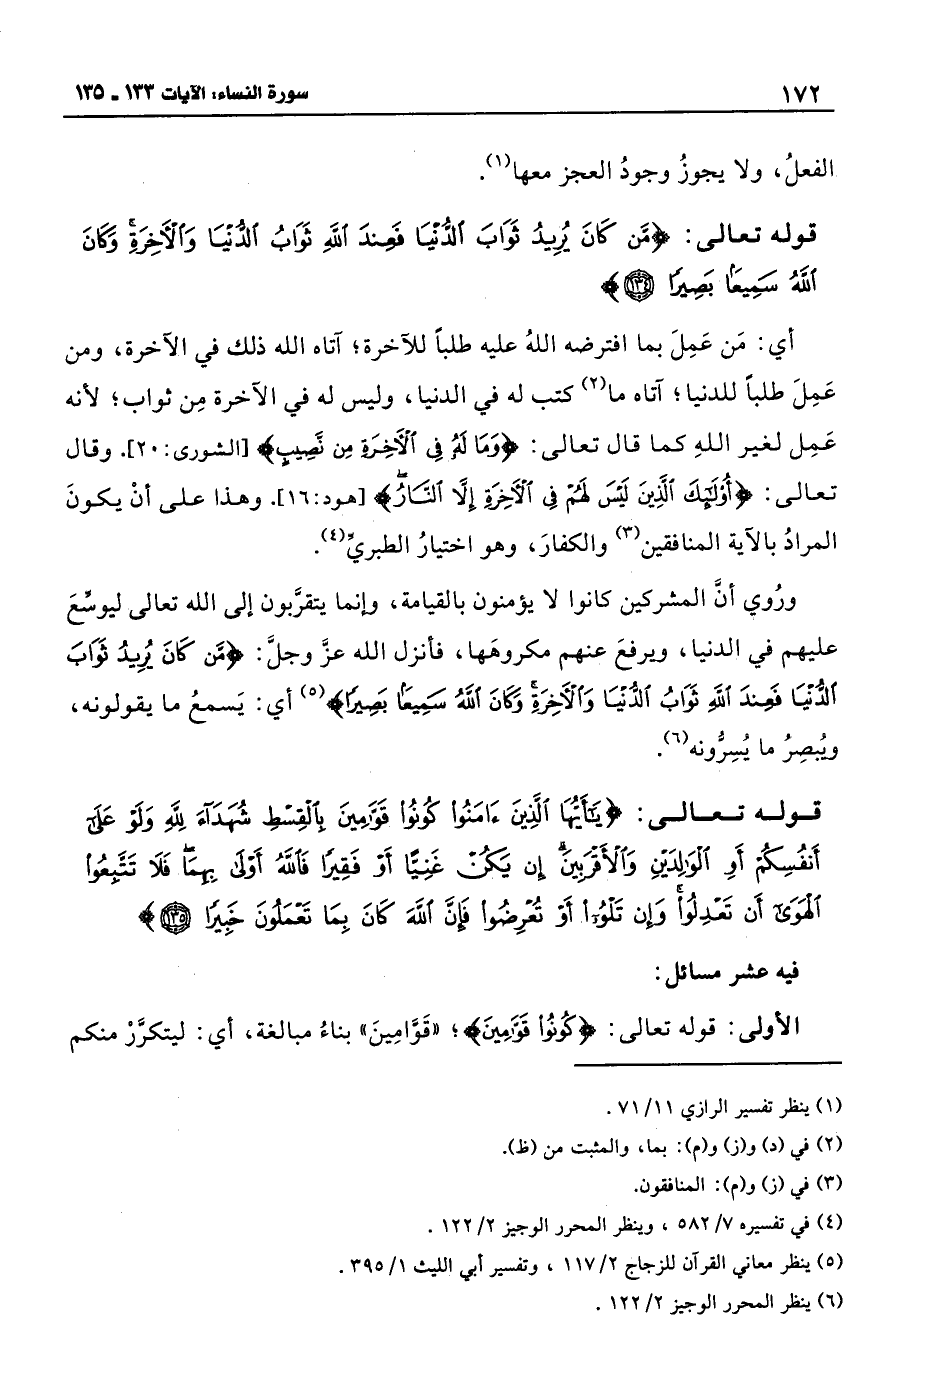 ١٧٢ سورة النساء: الآيات ١٣٣ ـ ١٣٥
الفعلُ، ولا يجوزُ وجودُ العجز معها(١).
قوله تعالى: ﴿مَّن كَانَ يُرِيدُ ثَوَابَ ٱلدُّنْيَا فَعِندَ ٱللَّهِ ثَوَابُ ٱلدُّنْيَا وَٱلْآخِرَةِۚ وَكَانَ
ٱللَّهُ سَمِيعًۢا بَصِيرًا ۝١٣٤﴾
أي: مَن عَمِلَ بما افترضه اللهُ عليه طلباً للآخرة؛ آتاه الله ذلك في الآخرة، ومن
عَمِلَ طلباً للدنيا؛ آتاه ما(٢) كتب له في الدنيا، وليس له في الآخرة مِن ثواب؛ لأنه
عَمِل لغير اللهِ كما قال تعالى: ﴿وَمَا لَهُۥ فِى ٱلْآخِرَةِ مِن نَّصِيبٍ﴾ [الشورى:٢٠]. وقال
تعالى: ﴿أُوْلَٰٓئِكَ ٱلَّذِينَ لَيْسَ لَهُمْ فِى ٱلْآخِرَةِ إِلَّا ٱلنَّارُۖ﴾ [هود:١٦]. وهذا على أنْ يكونَ
المرادُ بالآية المنافقين(٣) والكفارَ، وهو اختيارُ الطبريِّ(٤).
ورُوي أنَّ المشركين كانوا لا يؤمنون بالقيامة، وإنما يتقرَّبون إلى الله تعالى ليوسِّعَ
عليهم في الدنيا، ويرفعَ عنهم مكروهَها، فأنزل الله عزَّ وجلَّ: ﴿مَّن كَانَ يُرِيدُ ثَوَابَ
ٱلدُّنْيَا فَعِندَ ٱللَّهِ ثَوَابُ ٱلدُّنْيَا وَٱلْآخِرَةِۚ وَكَانَ ٱللَّهُ سَمِيعًۢا بَصِيرًا﴾(٥) أي: يَسمعُ ما يقولونه،
ويُبصِرُ ما يُسِرُّونه(٦).
قوله تعالى: ﴿يَٰٓأَيُّهَا ٱلَّذِينَ ءَامَنُوا۟ كُونُوا۟ قَوَّٰمِينَ بِٱلْقِسْطِ شُهَدَآءَ لِلَّهِ وَلَوْ عَلَىٰٓ
أَنفُسِكُمْ أَوِ ٱلْوَٰلِدَيْنِ وَٱلْأَقْرَبِينَۚ إِن يَكُنْ غَنِيًّا أَوْ فَقِيرًا فَٱللَّهُ أَوْلَىٰ بِهِمَاۖ فَلَا تَتَّبِعُوا۟
ٱلْهَوَىٰٓ أَن تَعْدِلُوا۟ۚ وَإِن تَلْوُۥٓا۟ أَوْ تُعْرِضُوا۟ فَإِنَّ ٱللَّهَ كَانَ بِمَا تَعْمَلُونَ خَبِيرًا ۝١٣٥﴾
فيه عشر مسائل:
الأولى: قوله تعالى: ﴿كُونُوا۟ قَوَّٰمِينَ﴾؛ «قَوَّامِينَ» بناءُ مبالغة، أي: ليتكرَّرْ منكم
(١) ينظر تفسير الرازي ٧١/١١ .
(٢) في (د) و(ز) و(م): بما، والمثبت من (ظ).
(٣) في (ز) و(م): المنافقون.
(٤) في تفسيره ٥٨٢/٧ ، وينظر المحرر الوجيز ١٢٢/٢ .
(٥) ينظر معاني القرآن للزجاج ١١٧/٢ ، وتفسير أبي الليث ٣٩٥/١ .
(٦) ينظر المحرر الوجيز ١٢٢/٢ .